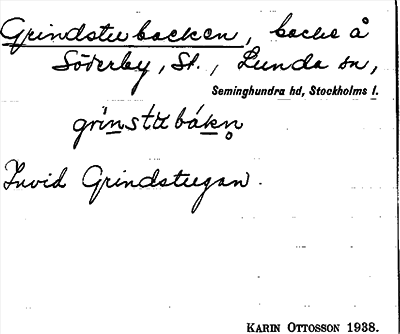 Grindstubacken, backe å
Söderby, St., Lunda sn,
Seminghundra hd, Stockholms l.
grinstubákn̥
Invid Grindstugan.
KARIN OTTOSSON 1938.